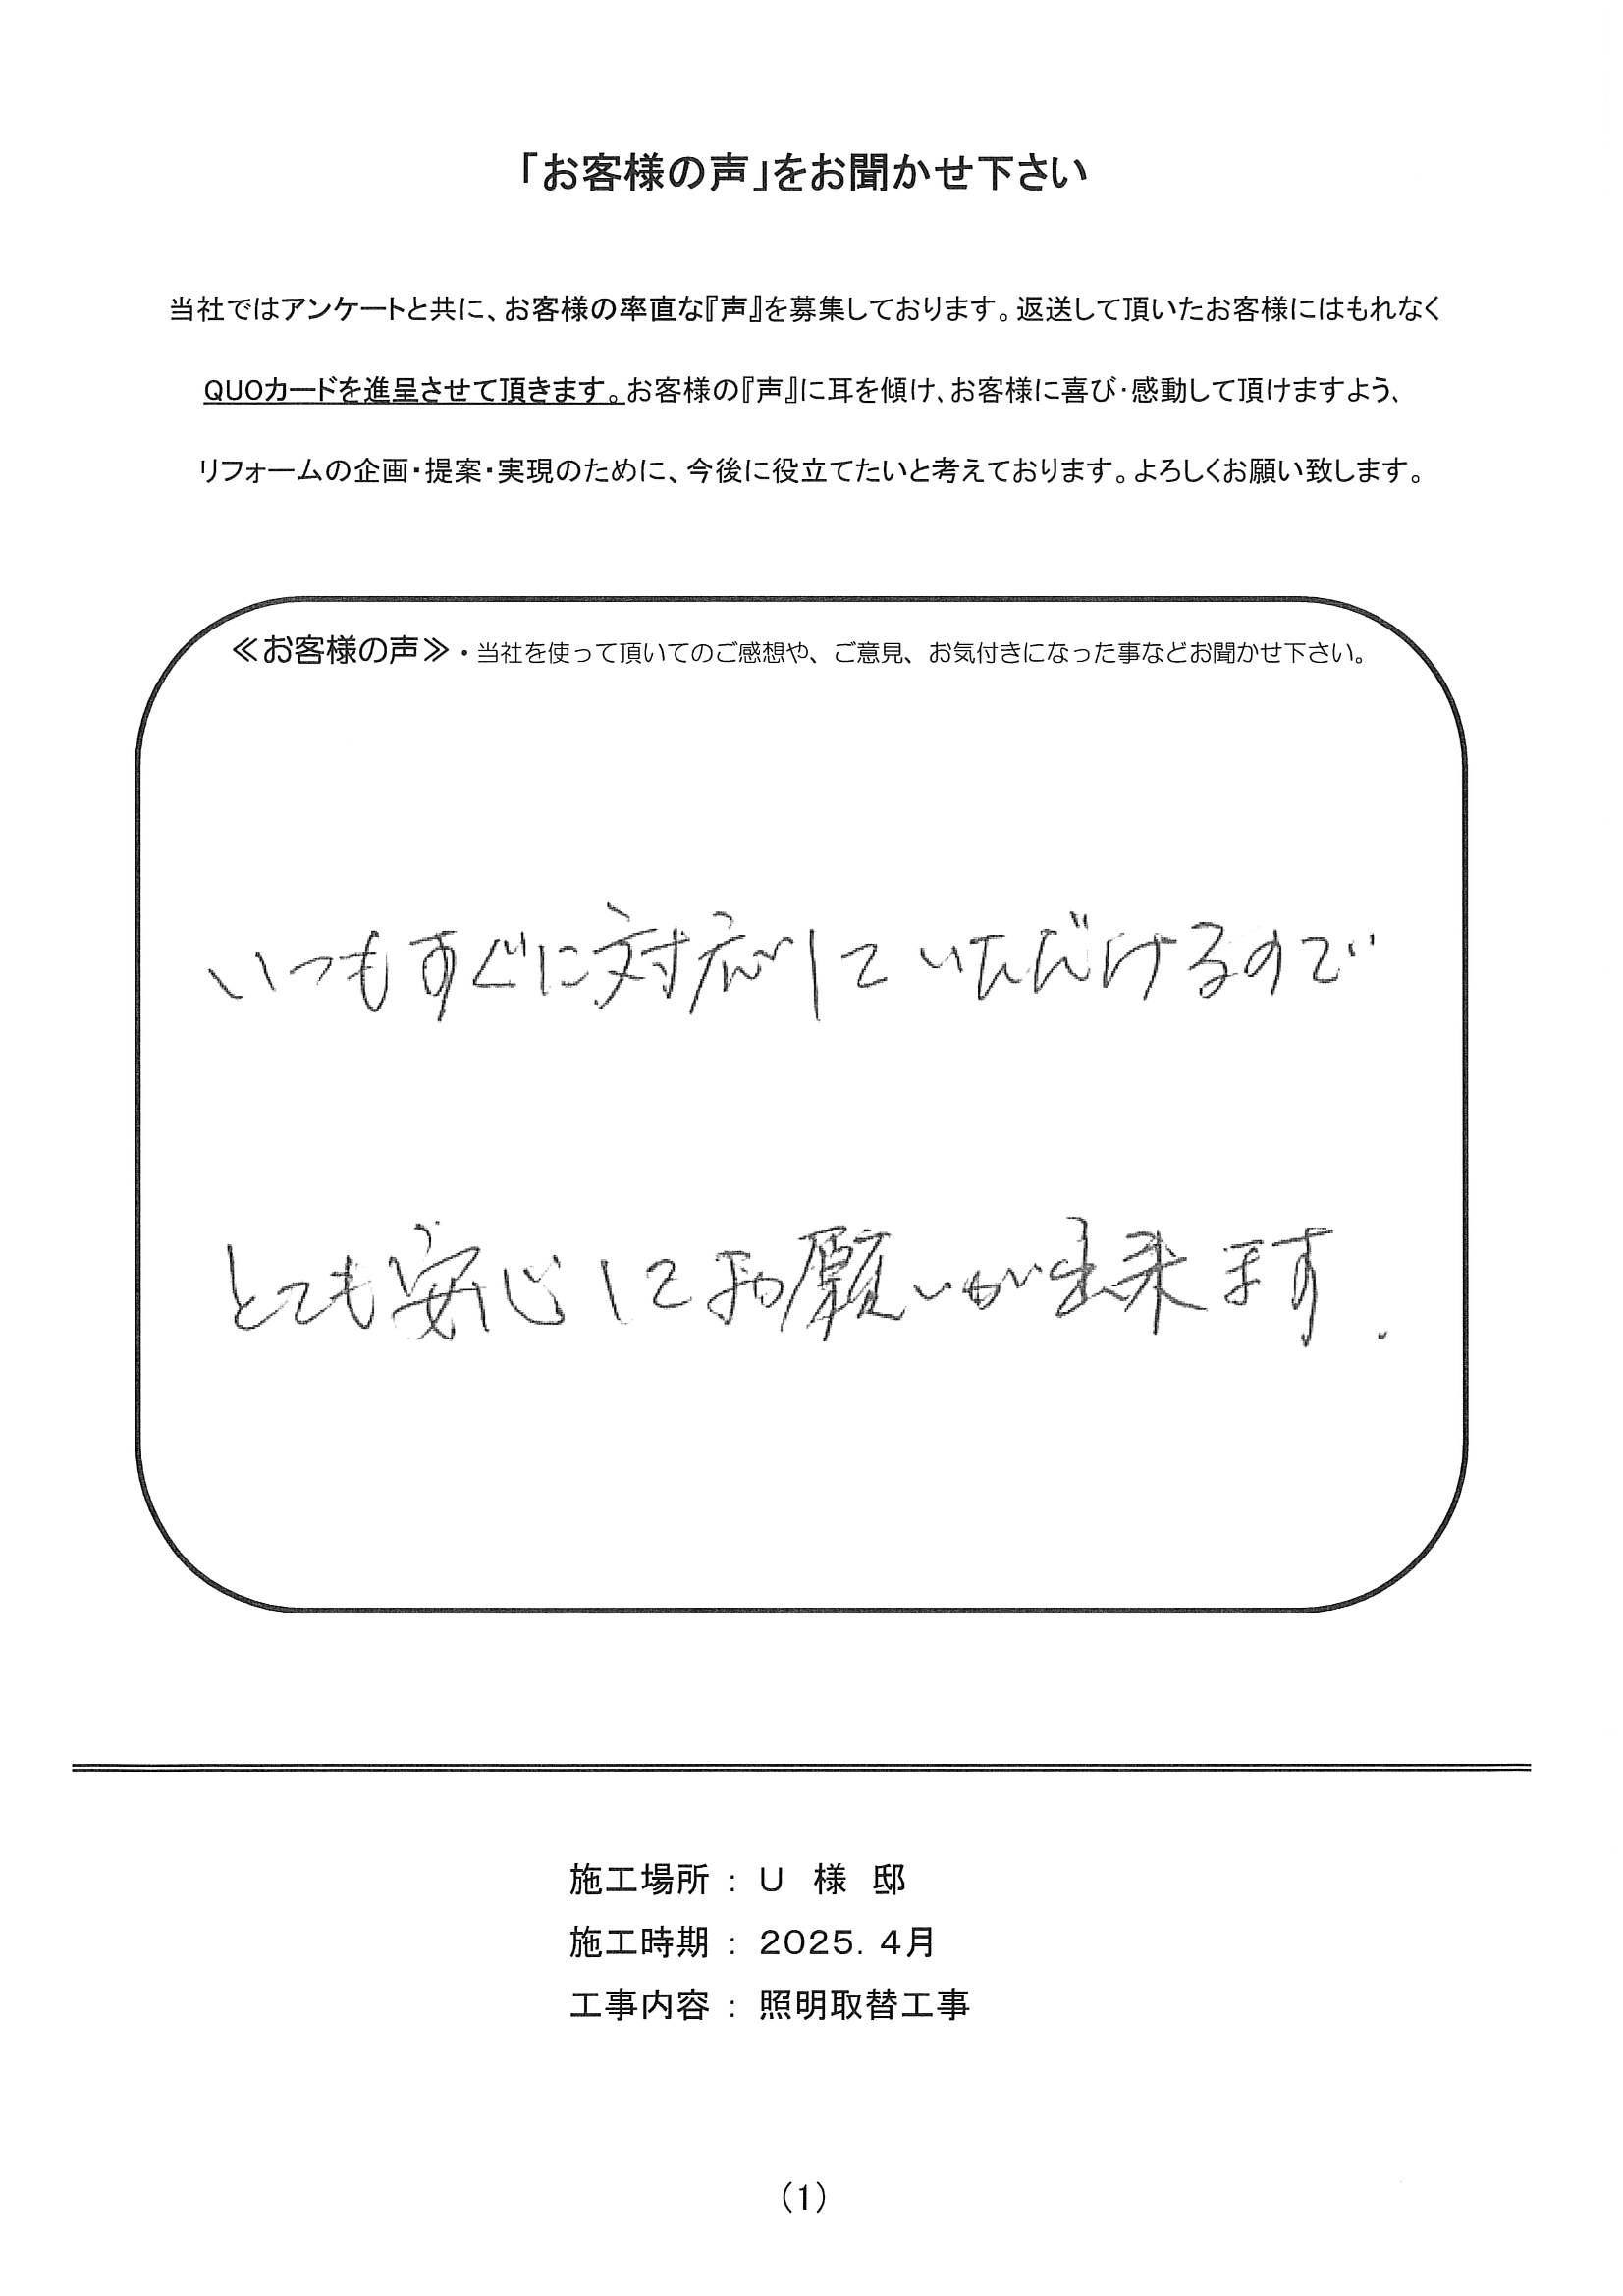 「お客様の声」をお聞かせ下さい
当社ではアンケートと共に、お客様の率直な『声』を募集しております。返送して頂いたお客様にはもれなく
QUOカードを進呈させて頂きます。お客様の『声』に耳を傾け、お客様に喜び・感動して頂けますよう、
リフォームの企画・提案・実現のために、今後に役立てたいと考えております。よろしくお願い致します。
≪お客様の声≫・当社を使って頂いてのご感想や、ご意見、お気付きになった事などお聞かせ下さい。
いつもすぐに対応していただけるので
とても安心してお願いが出来ます.
施工場所 : U 様 邸
施工時期 : 2025. 4月
工事内容 : 照明取替工事
(1)